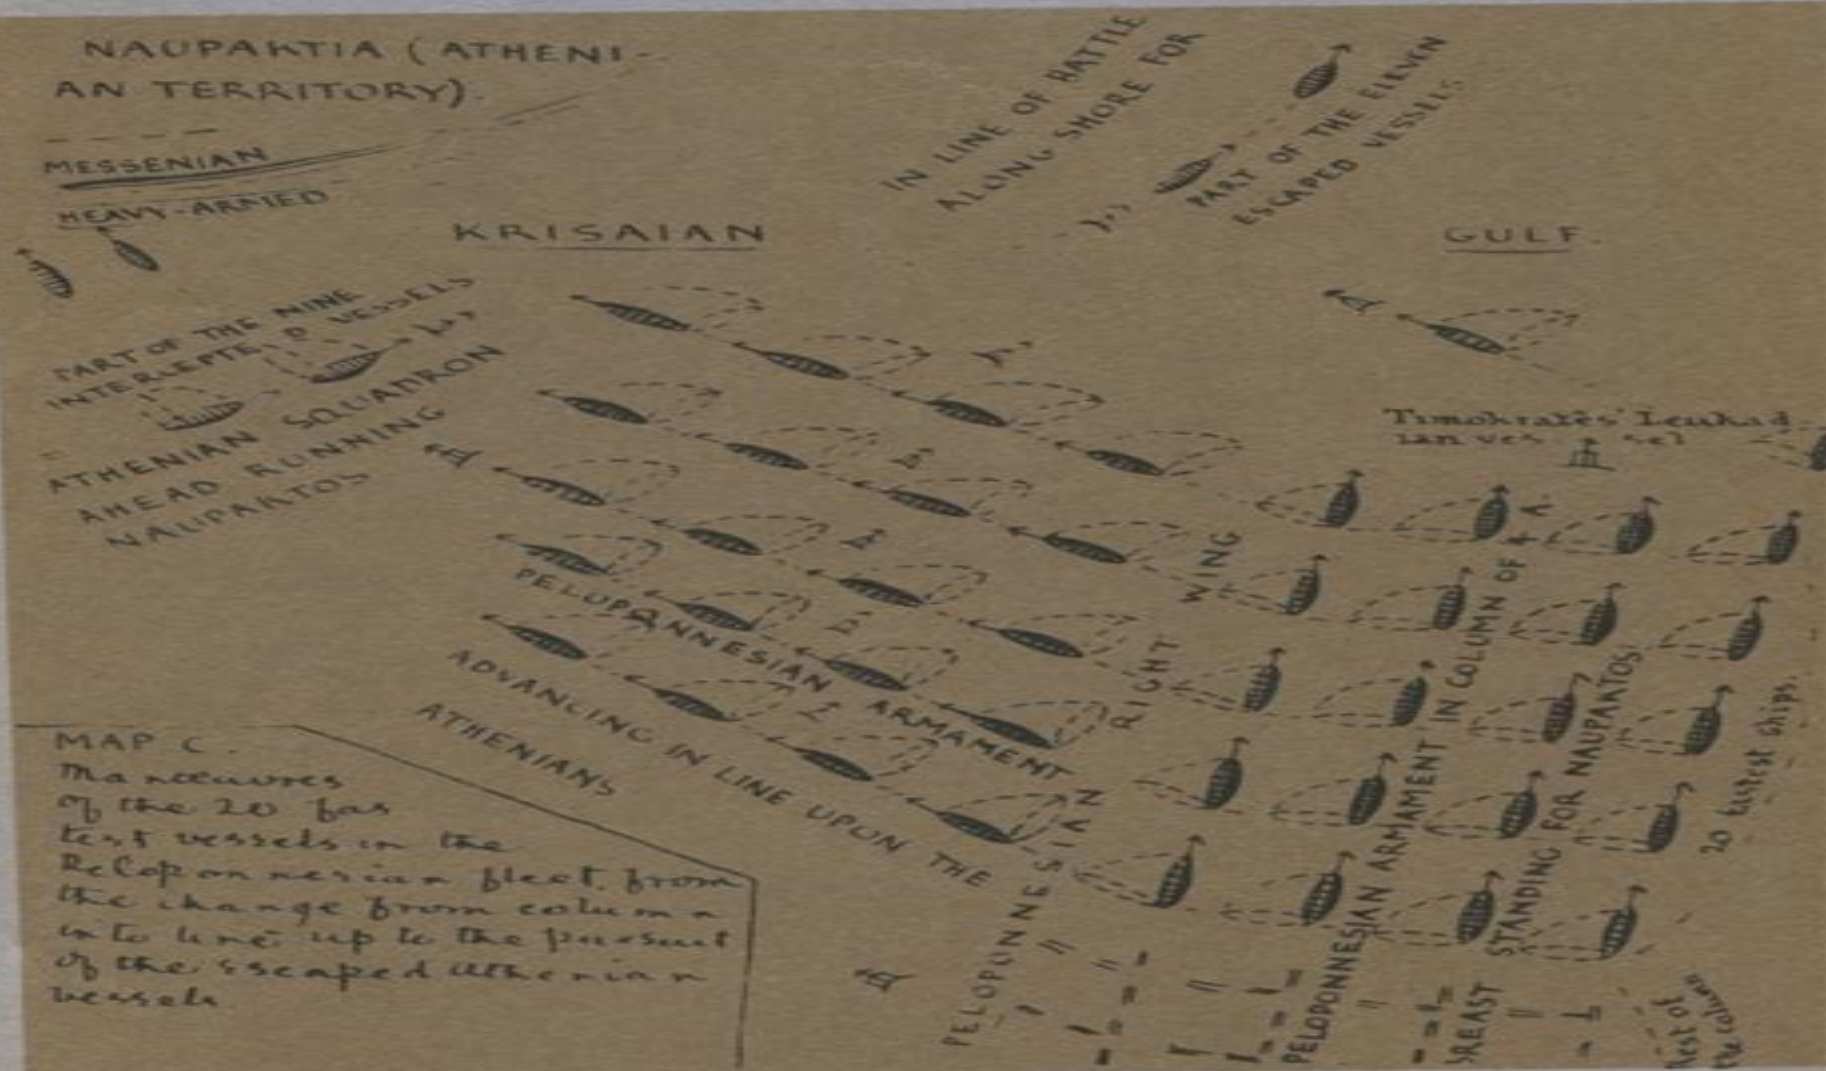 NAUPAKTIA (ATHENI-
AN TERRITORY).
MESSENIAN
HEAVY-ARMED
IN LINE OF BATTLE
ALONG SHORE FOR
PART OF THE ELEVEN
ESCAPED VESSELS
KRISAIAN GULF.
PART OF THE NINE
INTERCEPTED VESSELS
ATHENIAN SQUADRON
AHEAD RUNNING
NAUPAKTOS
Timokrates' Leukad-
ian ves sel
PELOPONNESIAN ARMAMENT
ADVANCING IN LINE UPON THE
ATHENIANS
PELOPONNESIAN RIGHT WING
PELOPONNESIAN ARMAMENT IN COLUMN OF 4
BREAST STANDING FOR NAUPATOS
20 ships.
Rest of
the column
MAP C.
Manœuvres
of the 20 fas
test vessels in the
Peloponnesian fleet from
the change from column
into line up to the pursuit
of the escaped Athenian
vessels